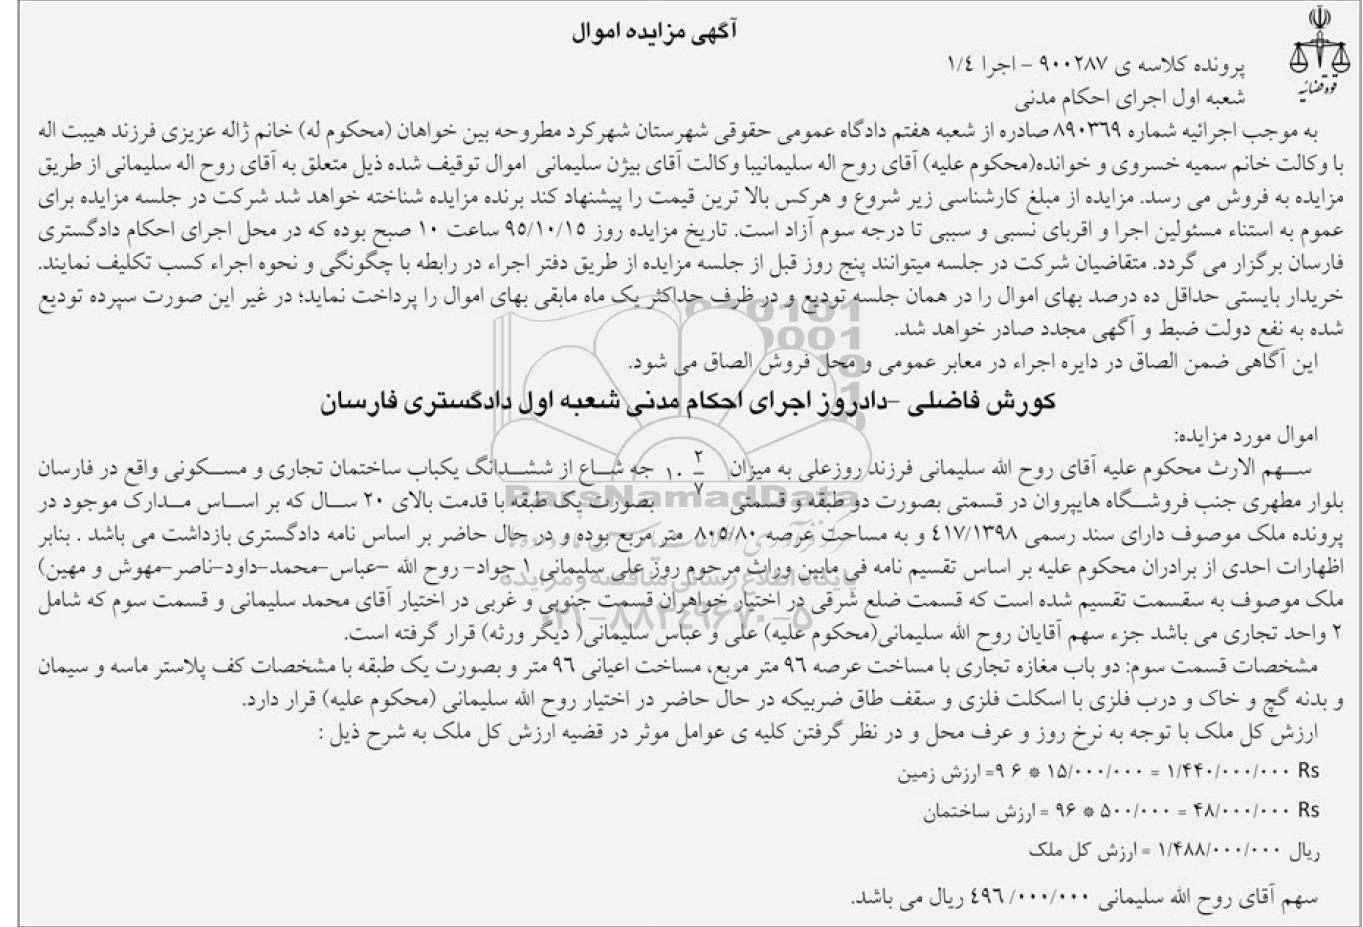 آگهی مزایده اموال
قوه قضائیه
پرونده کلاسه ی ۹۰۰۲۸۷ – اجرا ۱/٤
شعبه اول اجرای احکام مدنی
به موجب اجرائیه شماره ۸۹۰۳٦۹ صادره از شعبه هفتم دادگاه عمومی حقوقی شهرستان شهرکرد مطروحه بین خواهان (محکوم له) خانم ژاله عزیزی فرزند هیبت اله
با وکالت خانم سمیه خسروی و خوانده(محکوم علیه) آقای روح اله سلیمانیبا وکالت آقای بیژن سلیمانی اموال توقیف شده ذیل متعلق به آقای روح اله سلیمانی از طریق
مزایده به فروش می رسد. مزایده از مبلغ کارشناسی زیر شروع و هرکس بالا ترین قیمت را پیشنهاد کند برنده مزایده شناخته خواهد شد شرکت در جلسه مزایده برای
عموم به استناء مسئولین اجرا و اقربای نسبی و سببی تا درجه سوم آزاد است. تاریخ مزایده روز ۹۵/۱۰/۱۵ ساعت ۱۰ صبح بوده که در محل اجرای احکام دادگستری
فارسان برگزار می گردد. متقاضیان شرکت در جلسه میتوانند پنج روز قبل از جلسه مزایده از طریق دفتر اجراء در رابطه با چگونگی و نحوه اجراء کسب تکلیف نمایند.
خریدار بایستی حداقل ده درصد بهای اموال را در همان جلسه تودیع و در ظرف حداکثر یک ماه مابقی بهای اموال را پرداخت نماید؛ در غیر این صورت سپرده تودیع
شده به نفع دولت ضبط و آگهی مجدد صادر خواهد شد.
این آگاهی ضمن الصاق در دایره اجراء در معابر عمومی و محل فروش الصاق می شود.
کورش فاضلی –دادروز اجرای احکام مدنی شعبه اول دادگستری فارسان
اموال مورد مزایده:
سهم الارث محکوم علیه آقای روح الله سلیمانی فرزند روزعلی به میزان ۲/۷ ۱۰ جه شاع از ششدانگ یکباب ساختمان تجاری و مسکونی واقع در فارسان
بلوار مطهری جنب فروشگاه هایپروان در قسمتی بصورت دو طبقه و قسمتی بصورت یک طبقه با قدمت بالای ۲۰ سال که بر اساس مدارک موجود در
پرونده ملک موصوف دارای سند رسمی ٤۱۷/۱۳۹۸ و به مساحت عرصه ۸۰۵/۸۰ متر مربع بوده و در حال حاضر بر اساس نامه دادگستری بازداشت می باشد . بنابر
اظهارات احدی از برادران محکوم علیه بر اساس تقسیم نامه فی مابین وراث مرحوم روز علی سلیمانی ۱ جواد- روح الله –عباس-محمد-داود-ناصر-مهوش و مهین)
ملک موصوف به سقسمت تقسیم شده است که قسمت ضلع شرقی در اختیار خواهران قسمت جنوبی و غربی در اختیار آقای محمد سلیمانی و قسمت سوم که شامل
۲ واحد تجاری می باشد جزء سهم آقایان روح الله سلیمانی(محکوم علیه) علی و عباس سلیمانی( دیگر ورثه) قرار گرفته است.
مشخصات قسمت سوم: دو باب مغازه تجاری با مساخت عرصه ۹٦ متر مربع، مساخت اعیانی ۹٦ متر و بصورت یک طبقه با مشخصات کف پلاستر ماسه و سیمان
و بدنه گچ و خاک و درب فلزی با اسکلت فلزی و سقف طاق ضربیکه در حال حاضر در اختیار روح الله سلیمانی (محکوم علیه) قرار دارد.
ارزش کل ملک با توجه به نرخ روز و عرف محل و در نظر گرفتن کلیه ی عوامل موثر در قضیه ارزش کل ملک به شرح ذیل :
Rs ۱/۴۴۰/۰۰۰/۰۰۰ = ۱۵/۰۰۰/۰۰۰ * ۹۶= ارزش زمین
Rs ۴۸/۰۰۰/۰۰۰ = ۵۰۰/۰۰۰ * ۹۶ = ارزش ساختمان
ریال ۱/۴۸۸/۰۰۰/۰۰۰ = ارزش کل ملک
سهم آقای روح الله سلیمانی ٤۹٦/۰۰۰/۰۰۰ ریال می باشد.
ParsNamadData
پایگاه اطلاع رسانی مناقصه و مزایده
۰۲۱-۸۸۳۴۹۶۷۰-۵